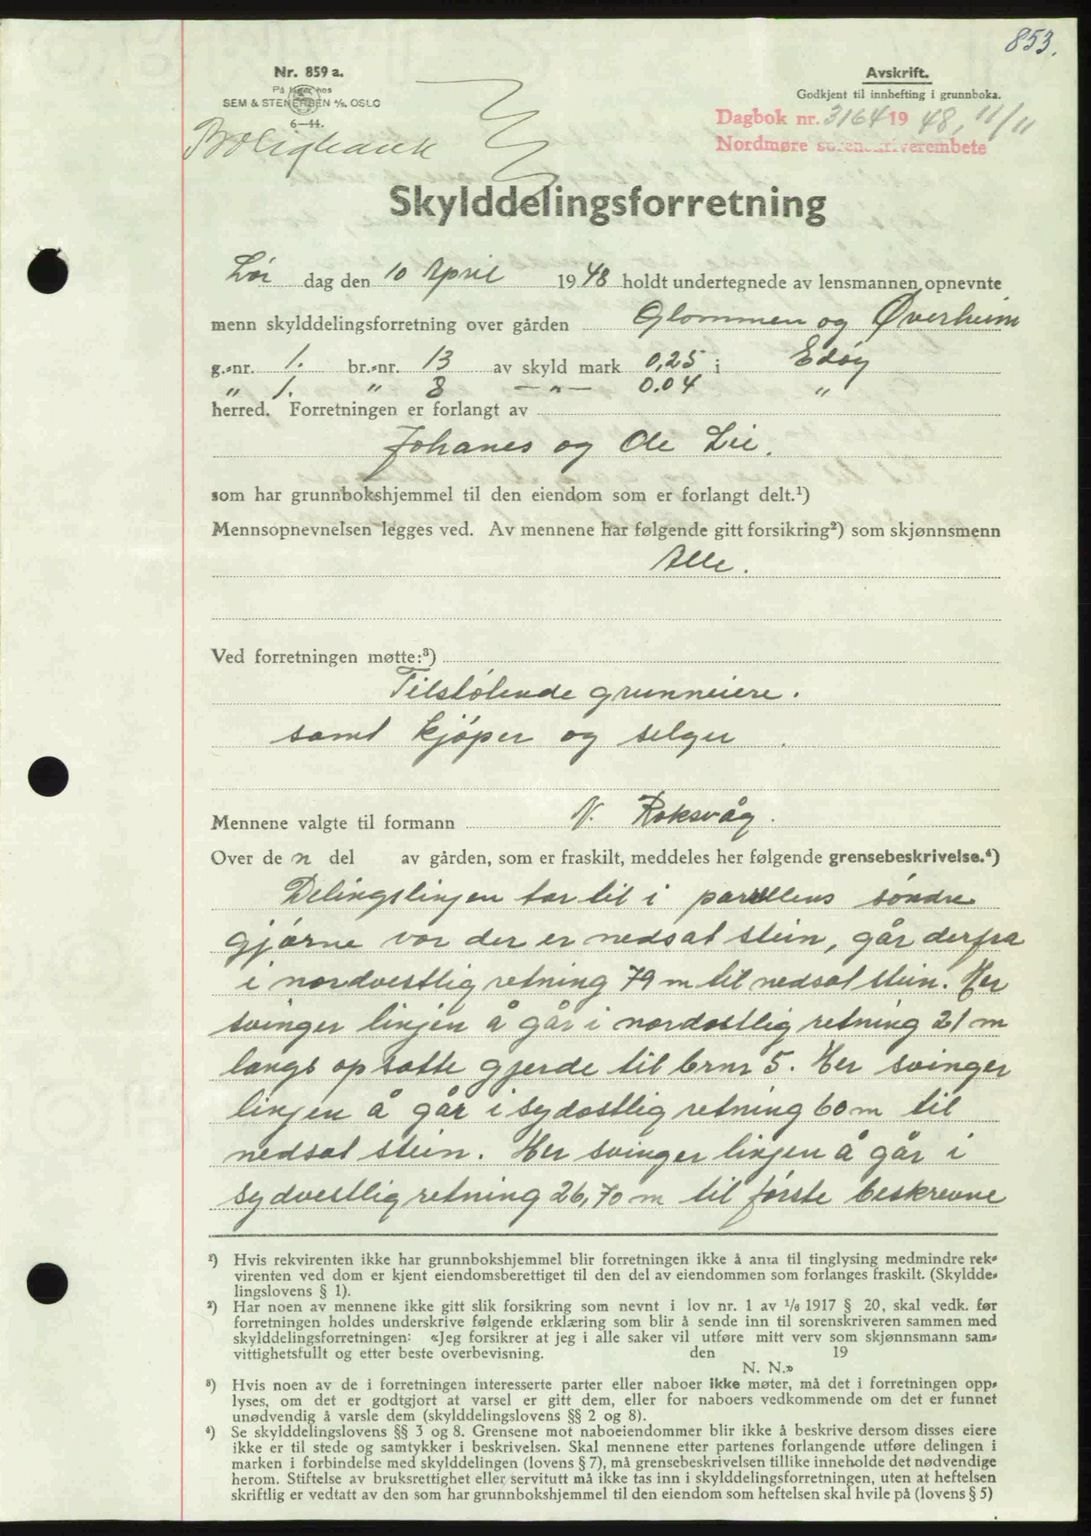 853.
Nr. 859 a.
På lager hos
SEM & STENERSEN A/S, OSLO
6–44.
Boligbank
Avskrift.
Godkjent til innhefting i grunnboka.
Dagbok nr. 3164 1948, 11/11
Nordmøre sorenskriverembete
Skylddelingsforretning
Lör dag den 10 April 1948 holdt undertegnede av lensmannen opnevnte
menn skylddelingsforretning over gården Glommen og Øverheim
g.-nr. 1. br.-nr. 13 av skyld mark 0,25 i Edöy
" 1. " 8 — " — 0.04 "
herred. Forretningen er forlangt av
Johanes og Ole Lie.
som har grunnbokshjemmel til den eiendom som er forlangt delt.¹)
Mennsopnevnelsen legges ved. Av mennene har følgende gitt forsikring²) som skjønnsmenn
Alle.
Ved forretningen møtte:³)
Tilstötende grunneiere.
samt kjöper og selger.
Mennene valgte til formann N. Roksvåg.
Over de n del av gården, som er fraskilt, meddeles her følgende grensebeskrivelse.⁴)
Delingslinjen tar til i parsellens söndre
gjörne vor der er nedsat stein, går derfra
i nordvestlig retning 79 m til nedsat stein. Her
svinger linjen å går i nordostlig retning 21 m
langs opsatte gjerde til brnr 5. Her svinger
linjen å går i sydostlig retning 60 m til
nedsat stein. Her svinger linjen å går i
sydvestlig retning 26,70 m til förste beskrevne
¹) Hvis rekvirenten ikke har grunnbokshjemmel blir forretningen ikke å anta til tinglysing medmindre rek-
virenten ved dom er kjent eiendomsberettiget til den del av eiendommen som forlanges fraskilt. (Skyldde-
lingslovens § 1).
²) Har noen av mennene ikke gitt slik forsikring som nevnt i lov nr. 1 av 1/6 1917 § 20, skal vedk. før
forretningen holdes underskrive følgende erklæring som blir å sende inn til sorenskriveren sammen med
skylddelingsforretningen: «Jeg forsikrer at jeg i alle saker vil utføre mitt verv som skjønnsmann sam-
vittighetsfullt og etter beste overbevisning. den 19
N. N.»
³) Hvis noen av de i forretningen interesserte parter eller naboer ikke møter, må det i forretningen opp-
lyses, om det er godtgjort at varsel er gitt dem, eller for naboers vedkommende om det er funnet
unødvendig å varsle dem (skylddelingslovens §§ 2 og 8).
⁴) Se skylddelingslovens §§ 3 og 8. Grensene mot naboeiendommer blir ikke å beskrive dersom disses eiere
ikke er til stede og samtykker i beskrivelsen. Skal mennene etter partenes forlangende utføre delingen i
marken i forbindelse med skylddelingen (lovens § 7), må grensebeskrivelsen tillike inneholde det nødvendige
herom. Stiftelse av bruksrettighet eller servitutt må ikke tas inn i skylddelingsforretningen, uten at heftelsen
skriftlig er vedtatt av den som har grunnbokshjemmel til den eiendom som heftelsen skal hvile på (lovens § 5)